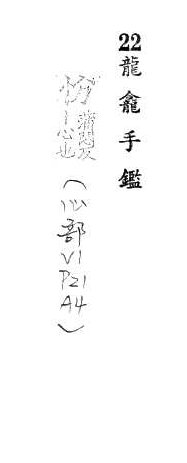 22龍龕手鑑
蒲悶反
心也
(心部V1P21A4)